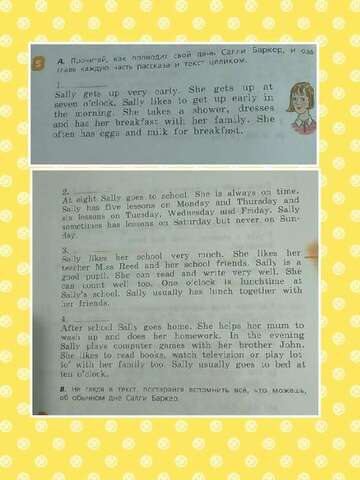 5
А. Прочитай, как проводит свой день Салли Баркер, и оза-
главь каждую часть рассказа и текст целиком.
1.
Sally gets up very early. She gets up at
seven o'clock. Sally likes to get up early in
the morning. She takes a shower, dresses
and has her breakfast with her family. She
often has eggs and milk for breakfast.
2.
At eight Sally goes to school. She is always on time.
Sally has five lessons on Monday and Thursday and
six lessons on Tuesday, Wednesday and Friday. Sally
sometimes has lessons on Saturday but never on Sun-
day.
3.
Sally likes her school very much. She likes her
teacher Miss Reed and her school friends. Sally is a
good pupil. She can read and write very well. She
can count well too. One o'clock is lunchtime at
Sally's school. Sally usually has lunch together with
her friends.
4.
After school Sally goes home. She helps her mum to
wash up and does her homework. In the evening
Sally plays computer games with her brother John.
She likes to read books, watch television or play lot-
to with her family too. Sally usually goes to bed at
ten o'clock.
В. Не глядя в текст, постарайся вспомнить всё, что можешь,
об обычном дне Салли Баркер.